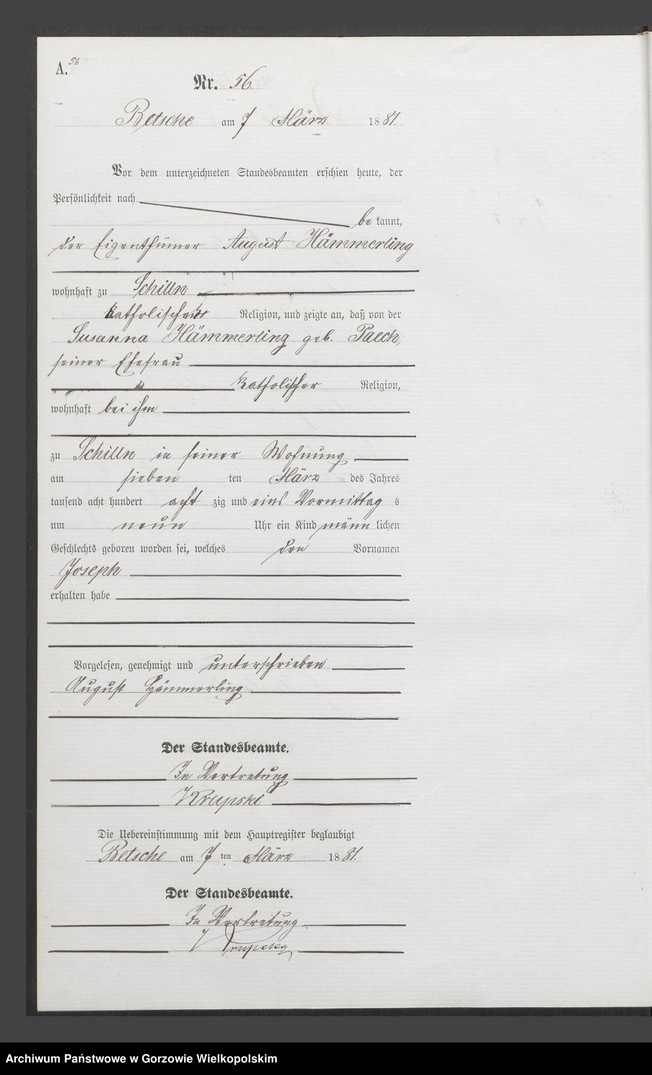 A. 56
Nr. 56
Betsche am 7 März 1881.
Vor dem unterzeichneten Standesbeamten erschien heute, der
Persönlichkeit nach
be kannt,
der Eigenthümer August Hämmerling
wohnhaft zu Schilln
katholischer Religion, und zeigte an, daß von der
Susanna Hämmerling geb. Paech,
seiner Ehefrau
katholischer Religion,
wohnhaft bei ihm
zu Schilln in seiner Wohnung
am sieben ten März des Jahres
tausend acht hundert acht zig und eins Vormittag s
um neun Uhr ein Kind männ lichen
Geschlechts geboren worden sei, welches den Vornamen
Joseph
erhalten habe
Vorgelesen, genehmigt und unterschrieben
August Hämmerling
Der Standesbeamte.
In Vertretung
Krupski
Die Uebereinstimmung mit dem Hauptregister beglaubigt
Betsche am 7 ten März 1881.
Der Standesbeamte.
In Vertretung
Krupski
Archiwum Państwowe w Gorzowie Wielkopolskim